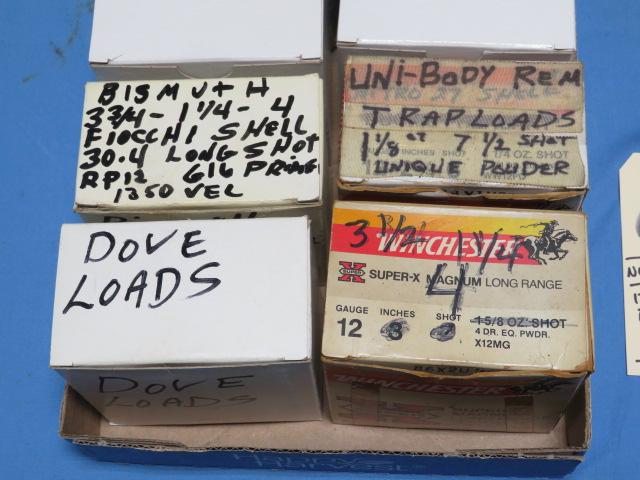 BISMUTH
3 3/4 - 1 1/4 - 4
FIOCCHI SHELL
30.4 LONGSHOT
RP12 616 PRIMER
1350 VEL
UNI-BODY REM
TRAP LOADS
1 1/8 oz 7 1/2 SHOT
INCHES SHOT OZ. SHOT
UNIQUE POWDER
DOVE
LOADS
DOVE
LOADS
3 3/4 1 1/4
WINCHESTER
X SUPER SUPER-X MAGNUM LONG RANGE
4
GAUGE INCHES SHOT 1-5/8 OZ. SHOT
12 3 4 DR. EQ. PWDR.
X12MG
WINCHESTER